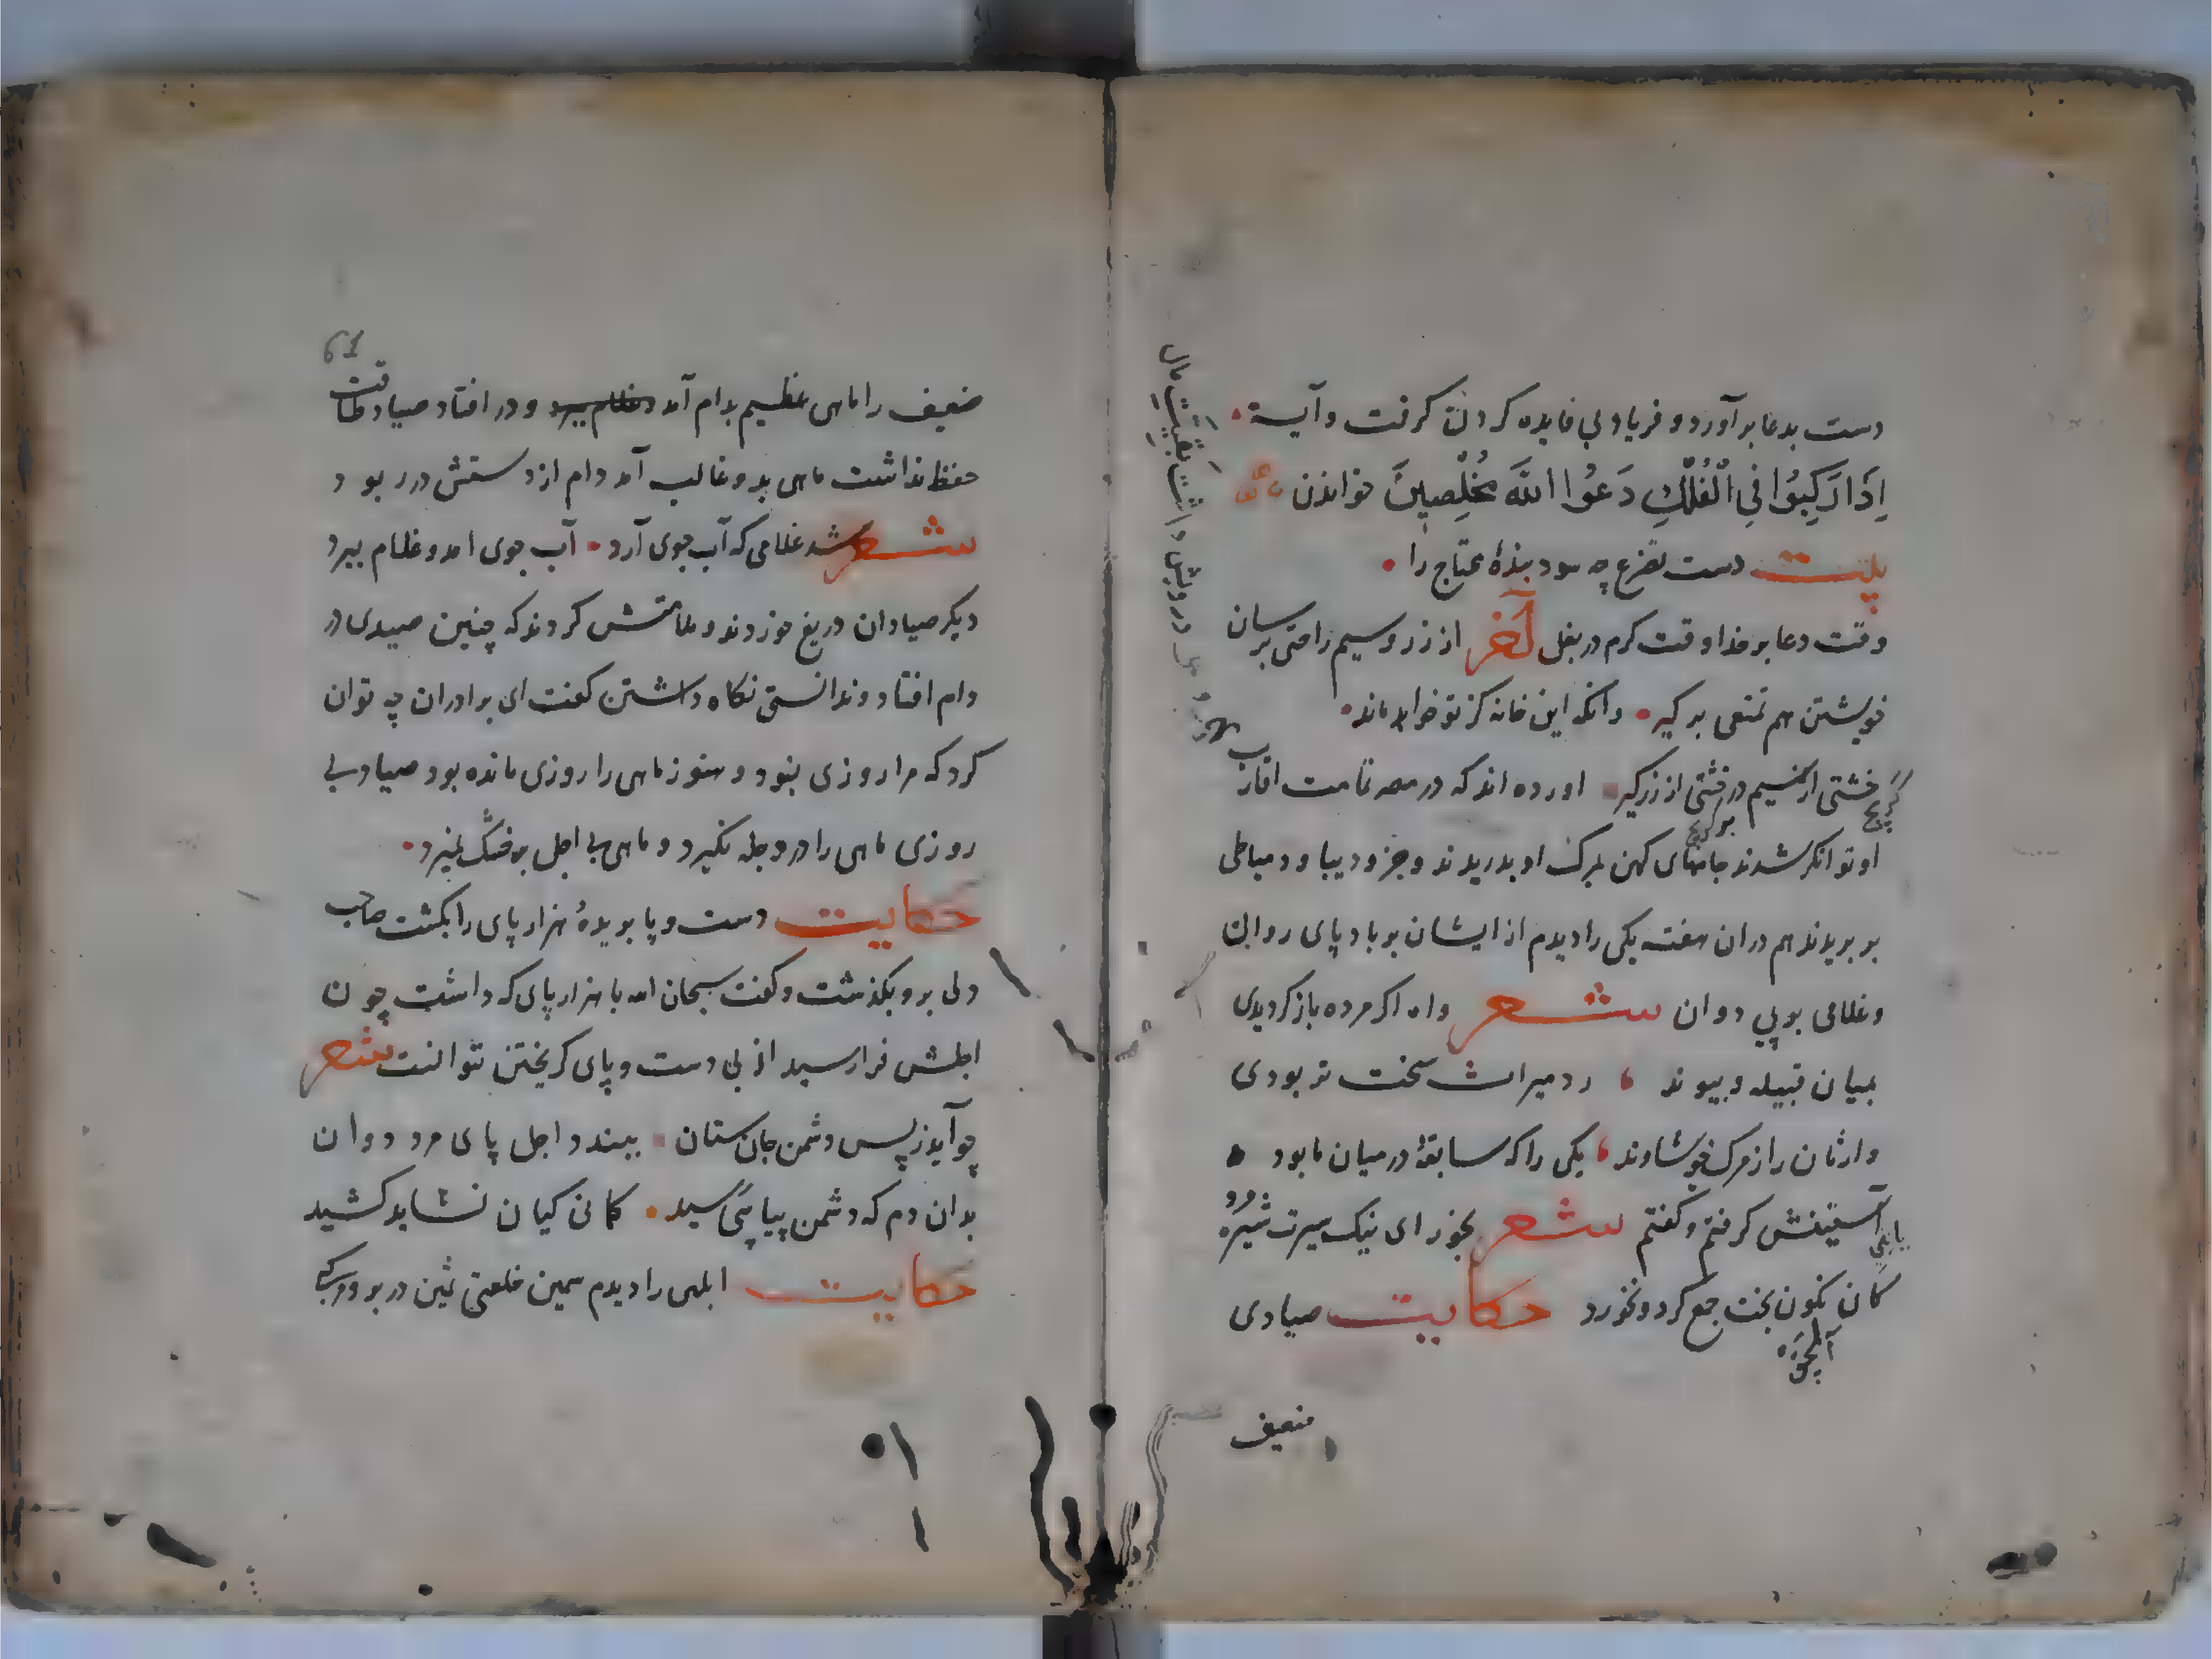 دست بدعا برآورد و فریاد بی فایده کردن گرفت و آیة
اِذَا رَكِبُوا فِي الْفُلْكِ دَعَوُا اللّٰهَ مُخْلِصِينَ خواندن
بیت دست تضرع چه سود بندهٔ محتاج را
وقت دعا بر خدا وقت کرم در بغل آخر از زر و سیم راحتی برسان
خویشتن هم تمتعی برگیر وانکه این خانه کز تو خواهد ماند
خشتی از سیم و خشتی از زر گیر اورده اند که در مصر اقارب
او توانکر شدند جامهای کهن بمرک او بدریدند و خز و دیبا و دمیاطی
بر بریدند هم دران هفته یکی را دیدم از ایشان بر باد پای روان
و غلامی بر پی دوان شعر واه اکر مرده باز کردیدی
بمیان قبیله و پیوند رد میراث سخت تر بودی
وارثان را ز مرک خویشاوند یکی را که سابقهٔ در میان ما بود
آستینش کرفتم و کفتم شعر بخور ای نیک سیرت سره مرد
کان نکون بخت جمع کرد و نخورد حکایت صیادی
ضعیف
61
ضعیف را ماهی عظیم بدام آمد و غلام ببرد و در افتاد صیاد طاقت
حفظ نداشت ماهی بدو غالب آمد دام از دستش در ربود
شعر شد غلامی که آب جوی آرد آب جوی امد و غلام ببرد
دیکر صیادان دریغ خوردند و ملامتش کردند که چنین صیدی در
دام افتاد و ندانستی نکاه داشتن کفت ای برادران چه توان
کرد که مرا روزی نبود و هنوز ماهی را روزی مانده بود صیاد بی
روزی ماهی را در دجله نکیرد و ماهی بی اجل بر خشک نمیرد
حکایت دست و پا بریدهٔ هزار پای را بکشت صاحب
دلی برو بکذشت و کفت سبحان الله با هزار پای که داشت چون
اجلش فرا رسید از بی دست و پای کریختن نتوانست شعر
چو آید ز پس دشمن جان ستان ببندد اجل پای مرد دوان
بدان دم که دشمن پیاپی رسید کمان کیان نشاید کشید
حکایت ابلهی را دیدم سمین خلعتی ثمین در بر و مرکبی